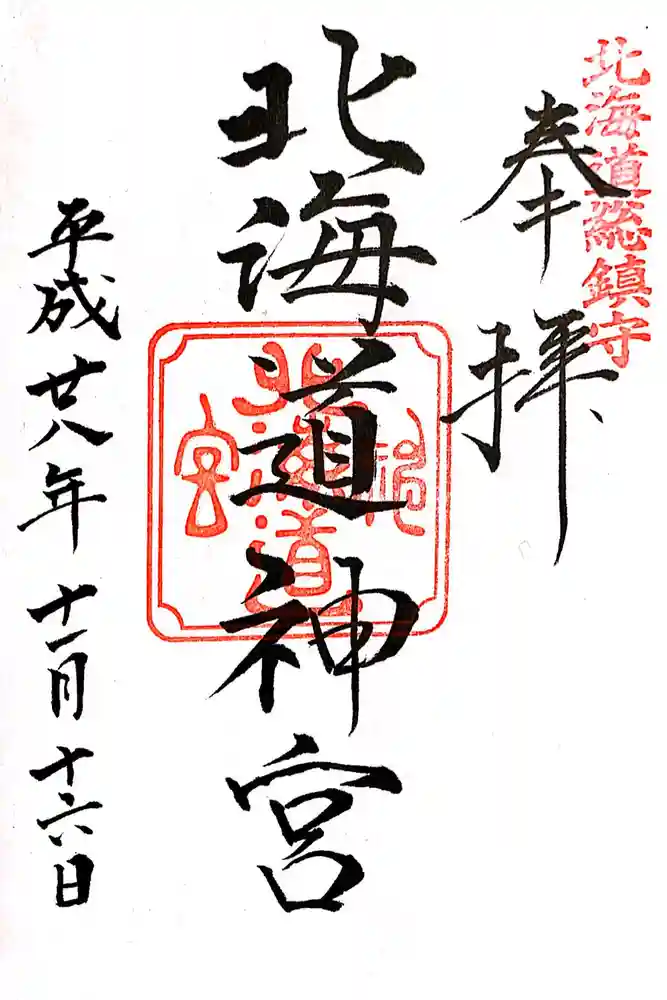 北海道総鎮守
奉拝
北海道神宮
北海道神宮
平成廿八年十一月十六日